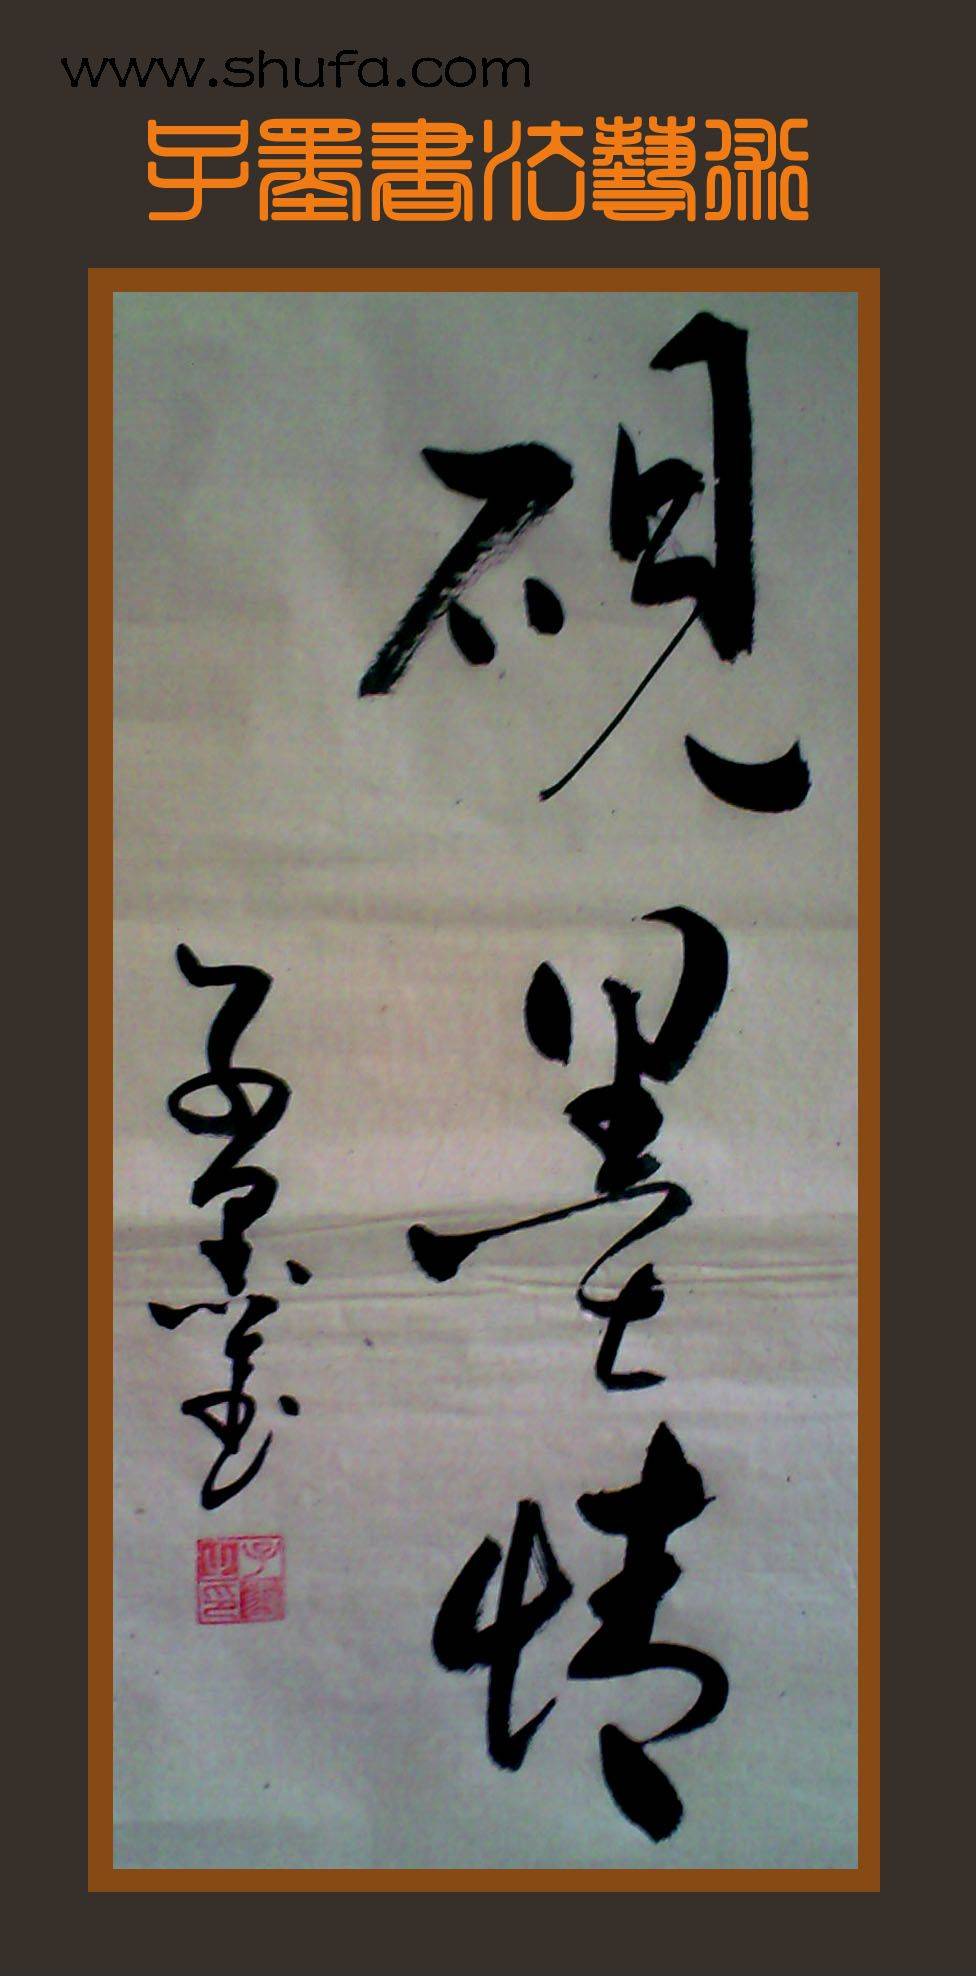 www.shufa.com
子墨書法藝術
硯墨情
子墨